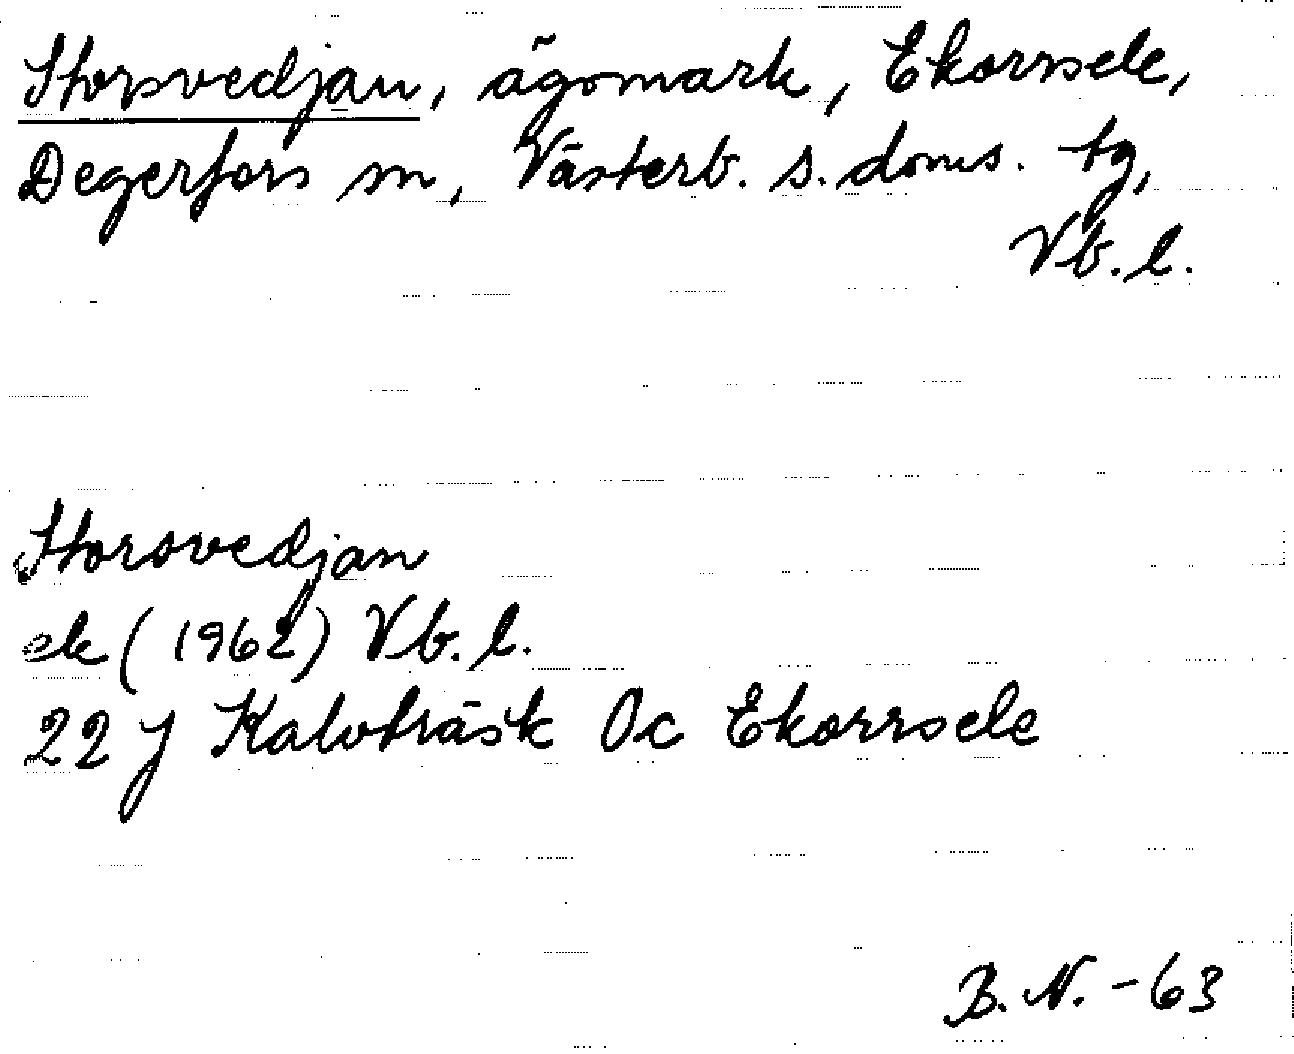 Storsvedjan, ägomark, Ekorrsele,
Degerfors sn, Västerb. s. doms. tg,
Vb. l.
Storsvedjan
ek (1962) Vb. l.
22 J Kalvträsk Oc Ekorrsele
B. N. - 63